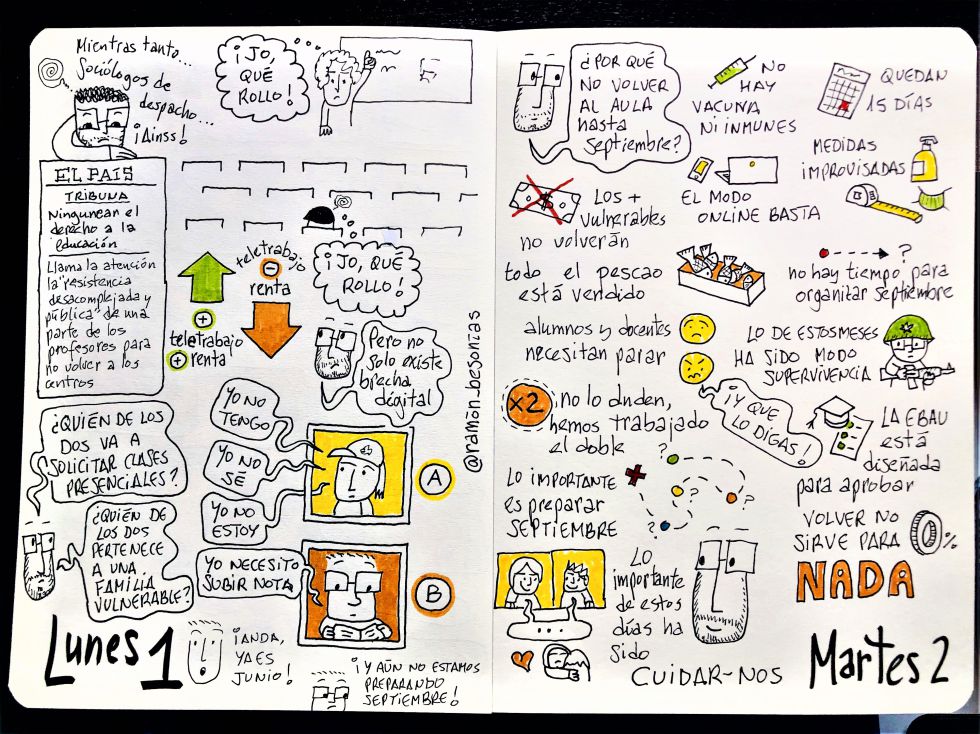 Mientras tanto...
Sociólogos de
despacho...
¡Ainss!
¡JO,
QUÉ
ROLLO!
EL PAIS
TRIBUNA
Ningunear el
derecho a la
educación
Llama la atención
la "resistencia
desacomplejada y
pública" de una
parte de los
profesores para
no volver a los
centros
teletrabajo
renta
teletrabajo
renta
¡JO, QUÉ
ROLLO!
Pero no
solo existe
brecha
digital
@ramón_besonías
¿QUIÉN DE LOS
DOS VA A
SOLICITAR CLASES
PRESENCIALES?
¿QUIÉN DE
LOS DOS
PERTENECE
A UNA
FAMILIA
VULNERABLE?
YO NO
TENGO
YO NO
SÉ
YO NO
ESTOY
A
YO NECESITO
SUBIR NOTA
B
Lunes 1
¡ANDA,
YA ES
JUNIO!
¡Y AÚN NO ESTAMOS
PREPARANDO
SEPTIEMBRE!
¿POR QUÉ
NO VOLVER
AL AULA
hasta
septiembre?
NO
HAY
VACUNA
NI INMUNES
QUEDAN
15 DÍAS
MEDIDAS
IMPROVISADAS
$
LOS +
vulnerables
no volverán
EL MODO
ONLINE BASTA
todo el pescao
está vendido
?
no hay tiempo para
organitar septiembre
alumnos y docentes
necesitan parar
LO DE ESTOS MESES
HA SIDO MODO
SUPERVIVENCIA
x2
no lo duden,
hemos trabajado
el doble
¡Y QUE
LO DIGAS!
LA EBAU
está
diseñada
para aprobar
LO IMPORTANTE
es preparar
SEPTIEMBRE
?
?
?
VOLVER NO
SIRVE PARA
NADA
0%
...
LO
importante
de estos
días ha
sido
CUIDAR-NOS
Martes 2